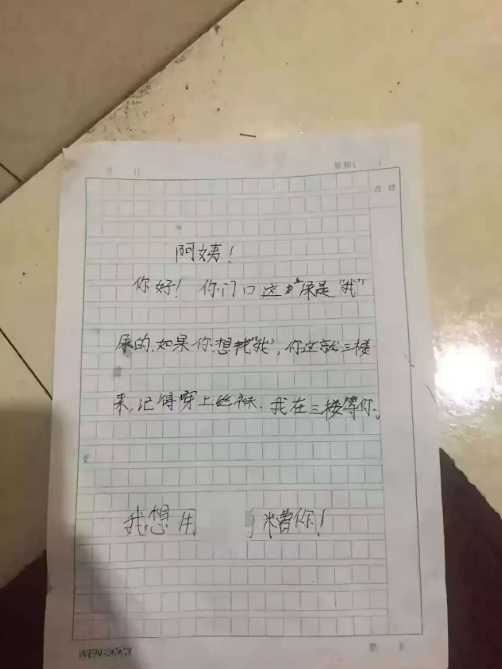 日 星期
阿姨！
你好！你门口这尿是"我"
尿的，如果你想找"我"，你这就三楼
来，记得穿上丝袜，我在三楼等你。
我想用 糟你！